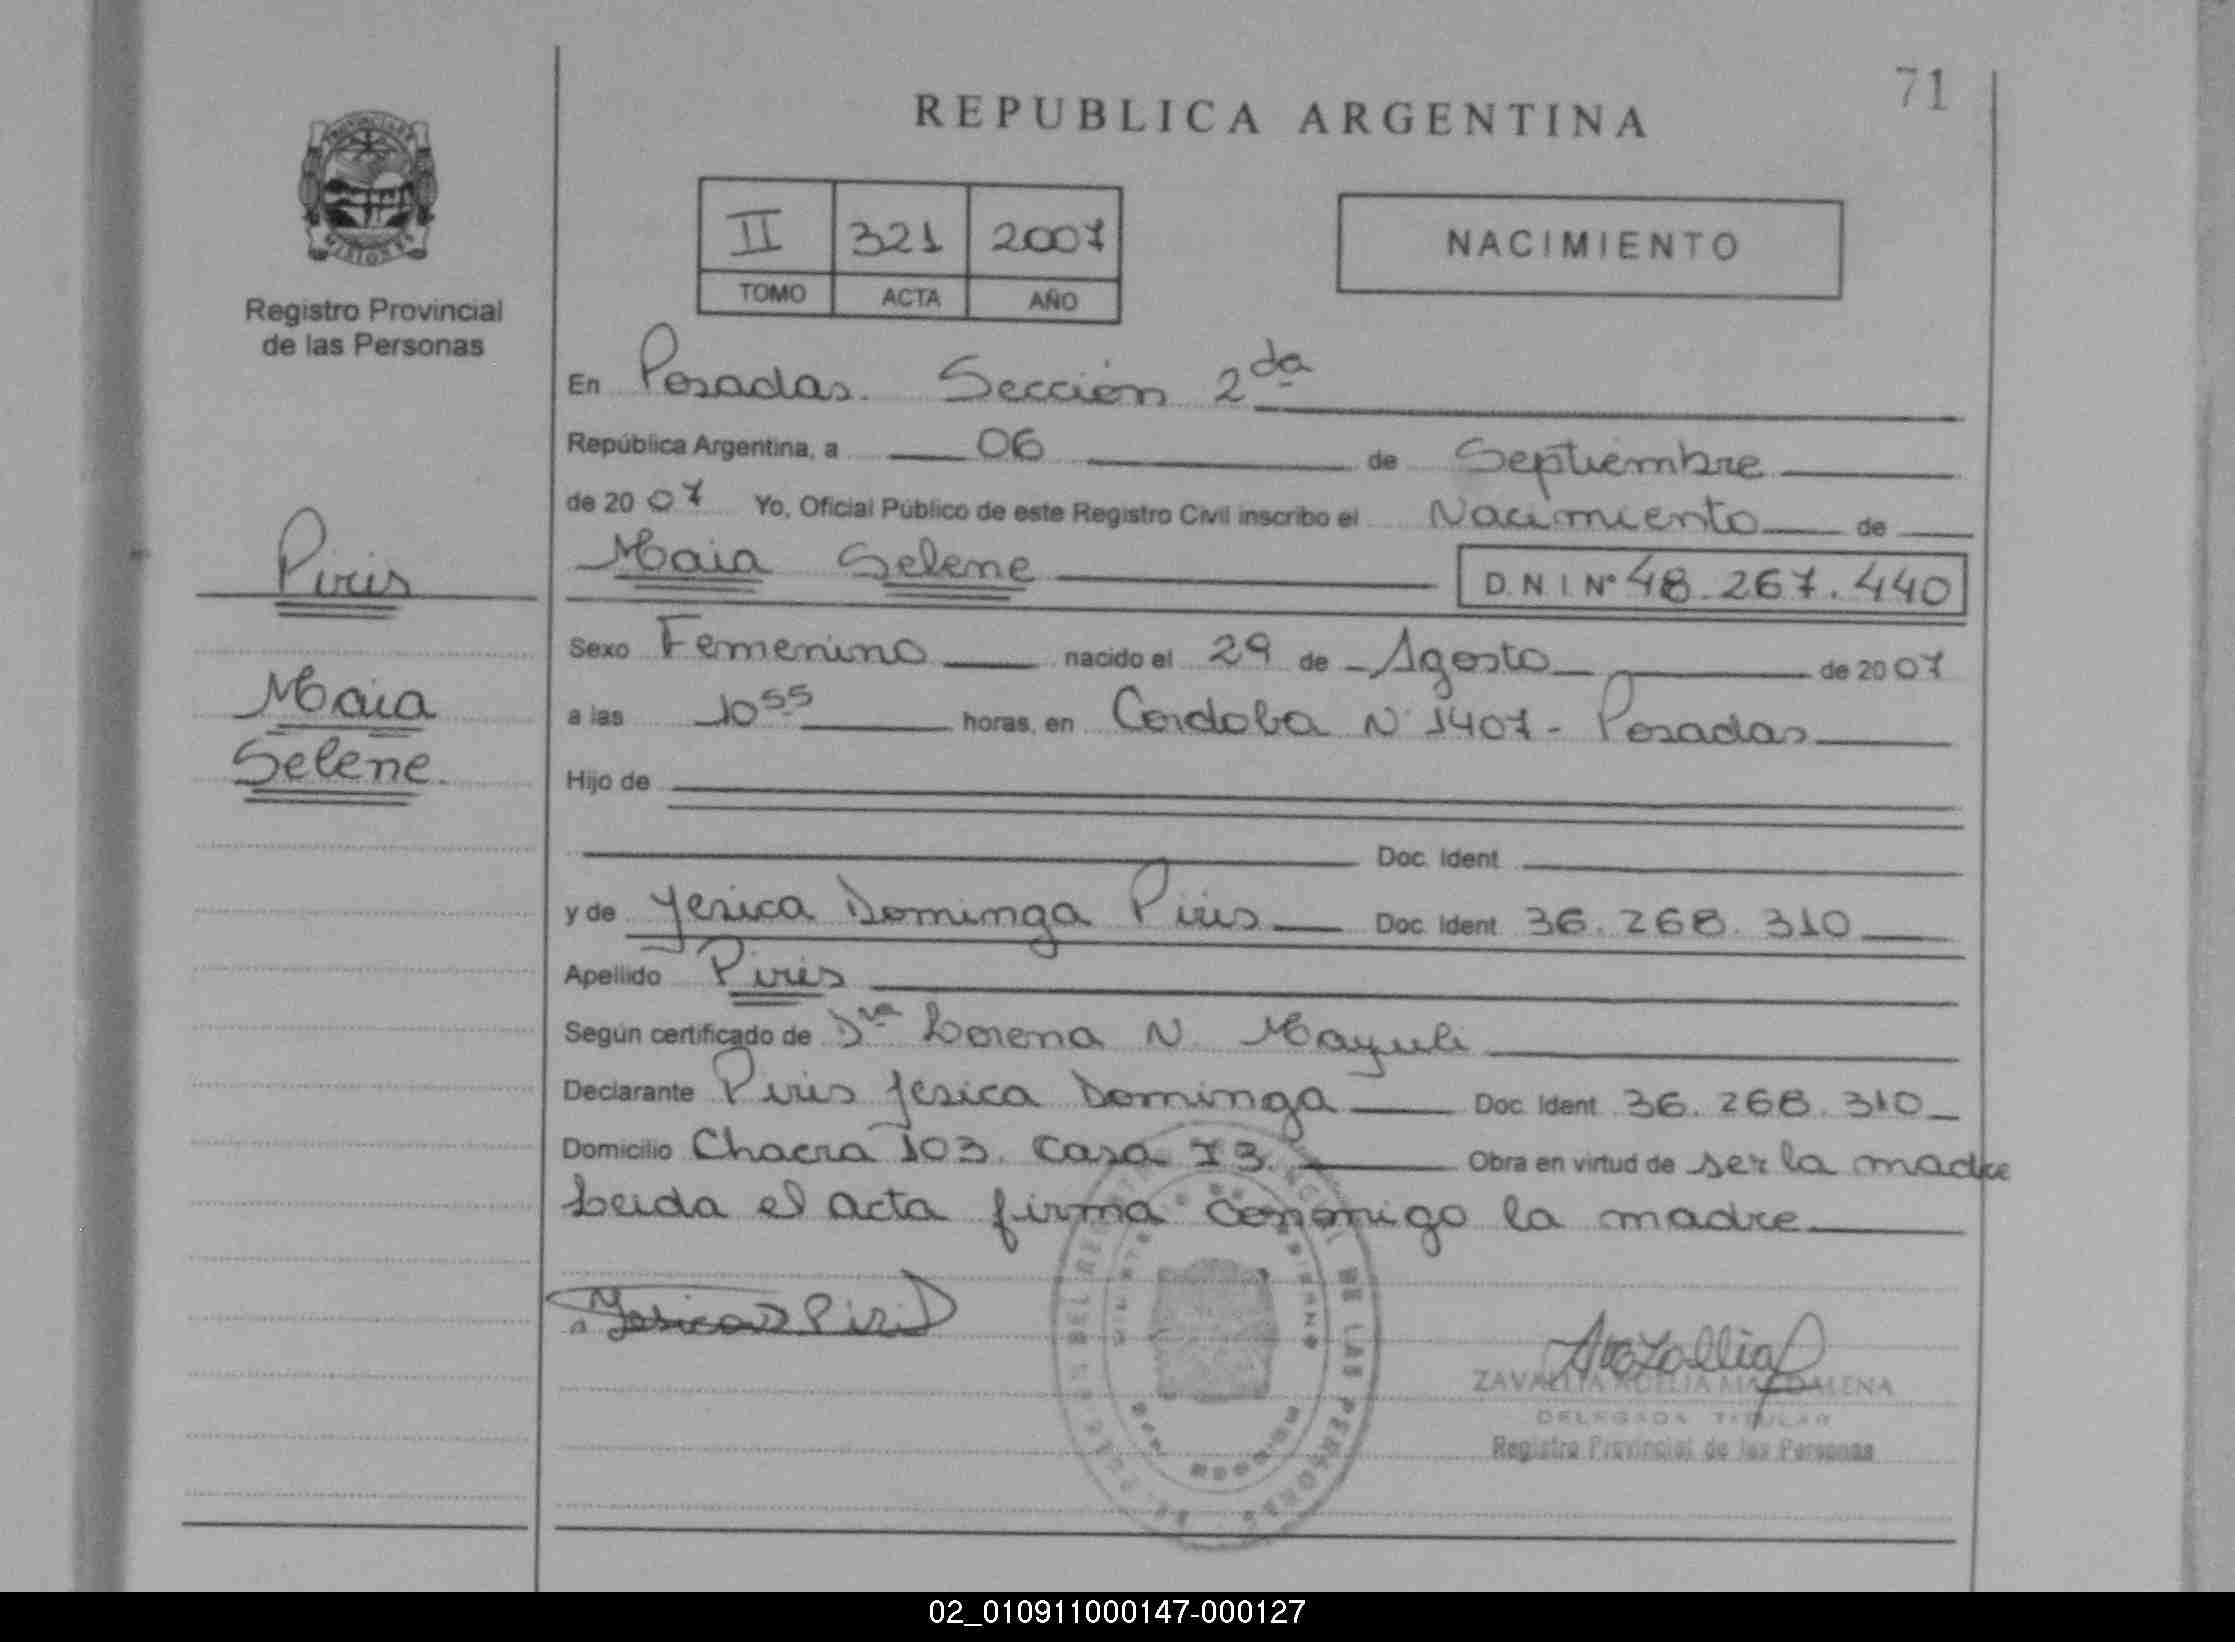 71
REPUBLICA ARGENTINA
II 321 2007
TOMO ACTA AÑO
NACIMIENTO
Registro Provincial
de las Personas
En Posadas. Sección 2da
República Argentina, a 06 de Septiembre
de 2007 Yo, Oficial Público de este Registro Civil inscribo el Nacimiento de
Maia Selene D.N.I. Nº 48.267.440
Piris
Maia
Selene.
Sexo Femenino nacido el 29 de Agosto de 2007
a las 10 55 horas, en Cordoba Nº 1407 - Posadas
Hijo de
Doc. Ident
y de Yesica Dominga Piris Doc. Ident 36.268.310
Apellido Piris
Según certificado de Dra Lorena N.
Declarante Piris Yesica Dominga Doc. Ident 36.268.310
Domicilio Chacra 103. Casa 73. Obra en virtud de ser la madre
Leida el acta firma conmigo la madre
ZAVALLIA ADELIA MAGDALENA
DELEGADA TITULAR
Registro Provincial de las Personas
02_010911000147-000127